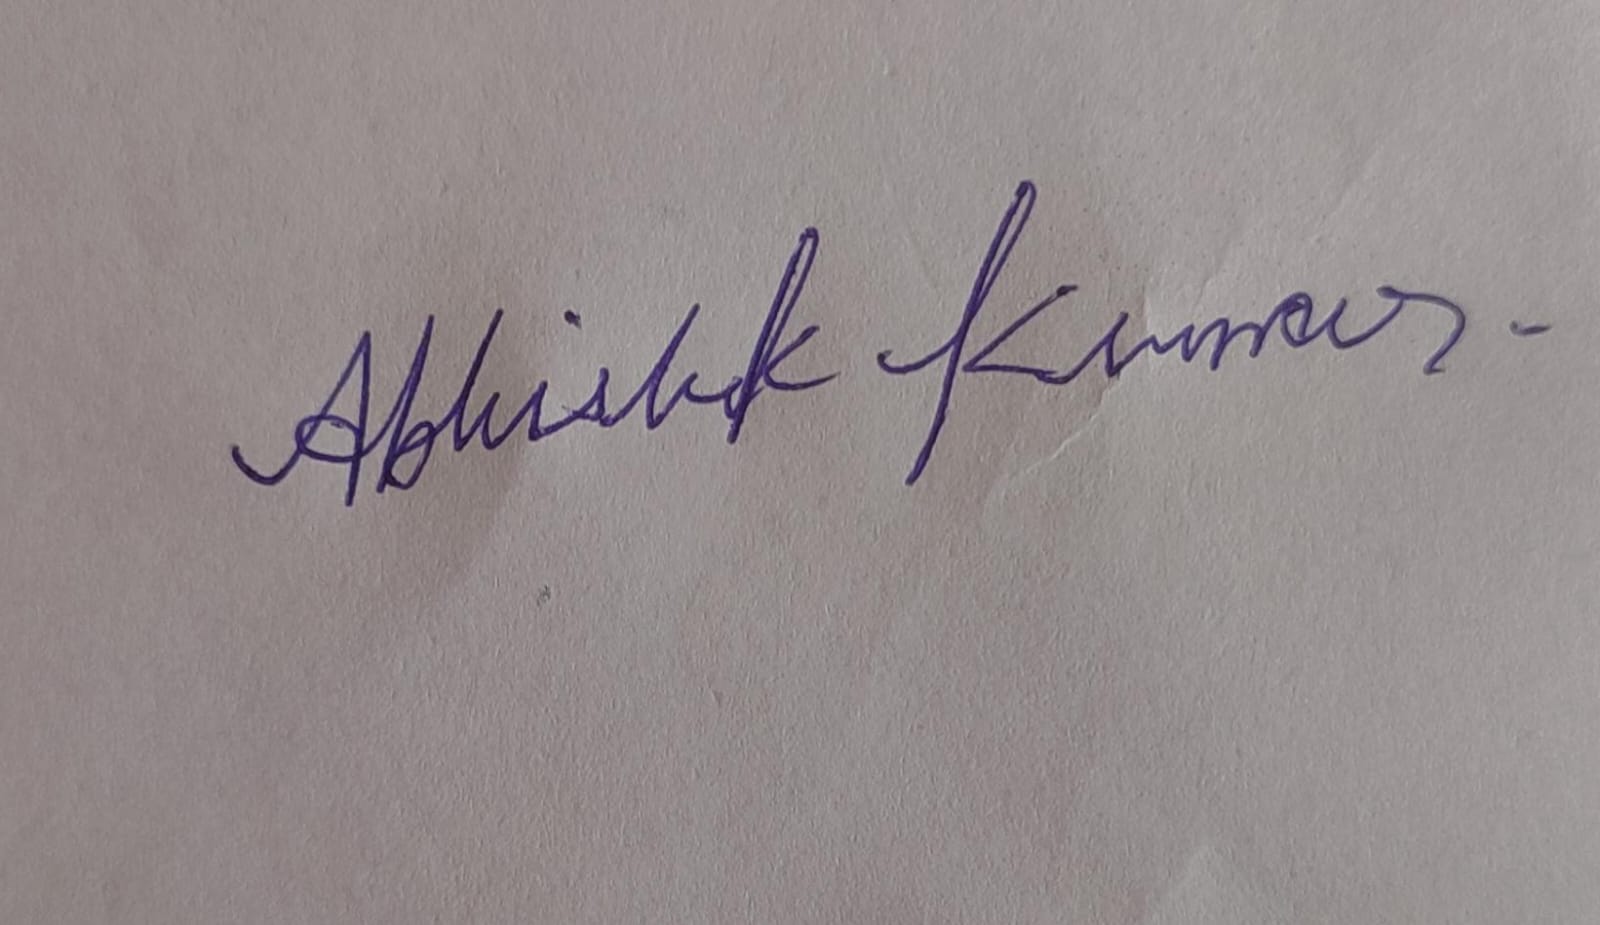 Abhishek Kumar.-